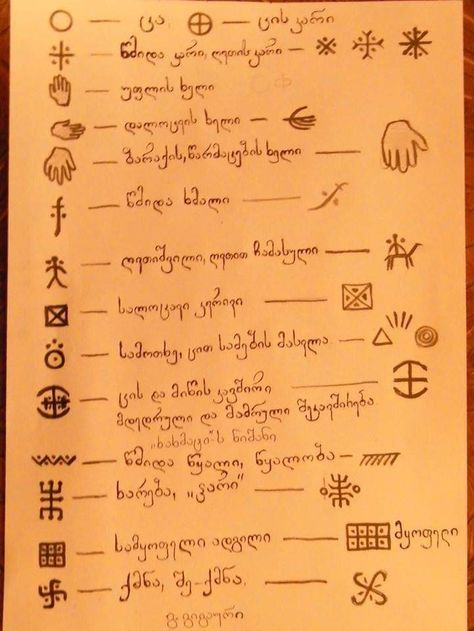 ცა ცის კარი
წმიდა კარი, ღთის კარი
უფლის ხელი
დალოცვის ხელი
ბარაქის, წარმატების ხელი
წმიდა ხმალი
ღთიშვილი, ღთით ჩამასული
სალოცავი
სამოთხე, ცით სამების
ცის და მიწის კავშირი
მდედრული და მამრული შეკავშირება
„ხახმატი“-ს ნიშანი
წმიდა წყალი, წყალობა
ხარება, „ჯარი“
სამყოფელი ადგილი მყოფელი
ქმნა, შე-ქმნა.
გ. გიგაური